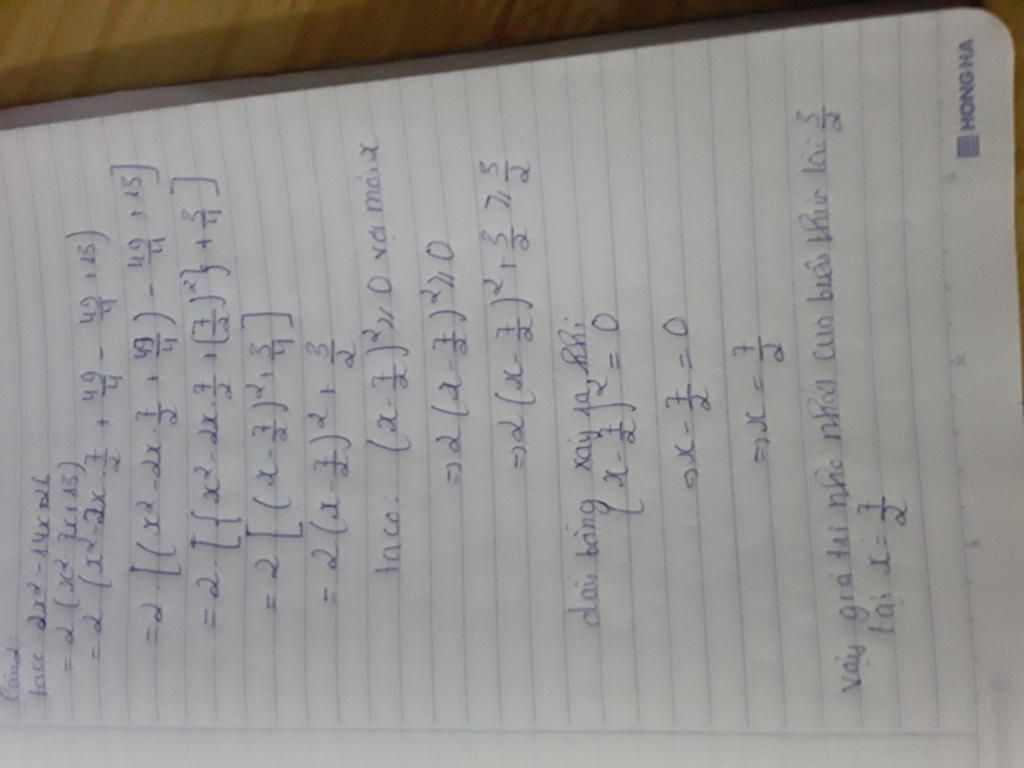 ta có 2x² - 14x + 26
= 2 (x² - 7x + 13)
= 2 (x² - 2x 7/2 + 49/4 - 49/4 + 13)
= 2 . [(x² - 2x 7/2 + 49/4) - 49/4 + 13]
= 2 . [{x² - 2x 7/2 + (7/2)²} + 3/4]
= 2 [(x - 7/2)² + 3/4]
= 2 (x - 7/2)² + 3/2
ta có: (x - 7/2)² ≥ 0 với mọi x
=> 2 (x - 7/2)² ≥ 0
=> 2 (x - 7/2)² + 3/2 ≥ 3/2
dấu bằng xảy ra khi:
(x - 7/2)² = 0
=> x - 7/2 = 0
=> x = 7/2
vậy giá trị nhỏ nhất của biểu thức là: 3/2
tại x = 7/2
HONG HA